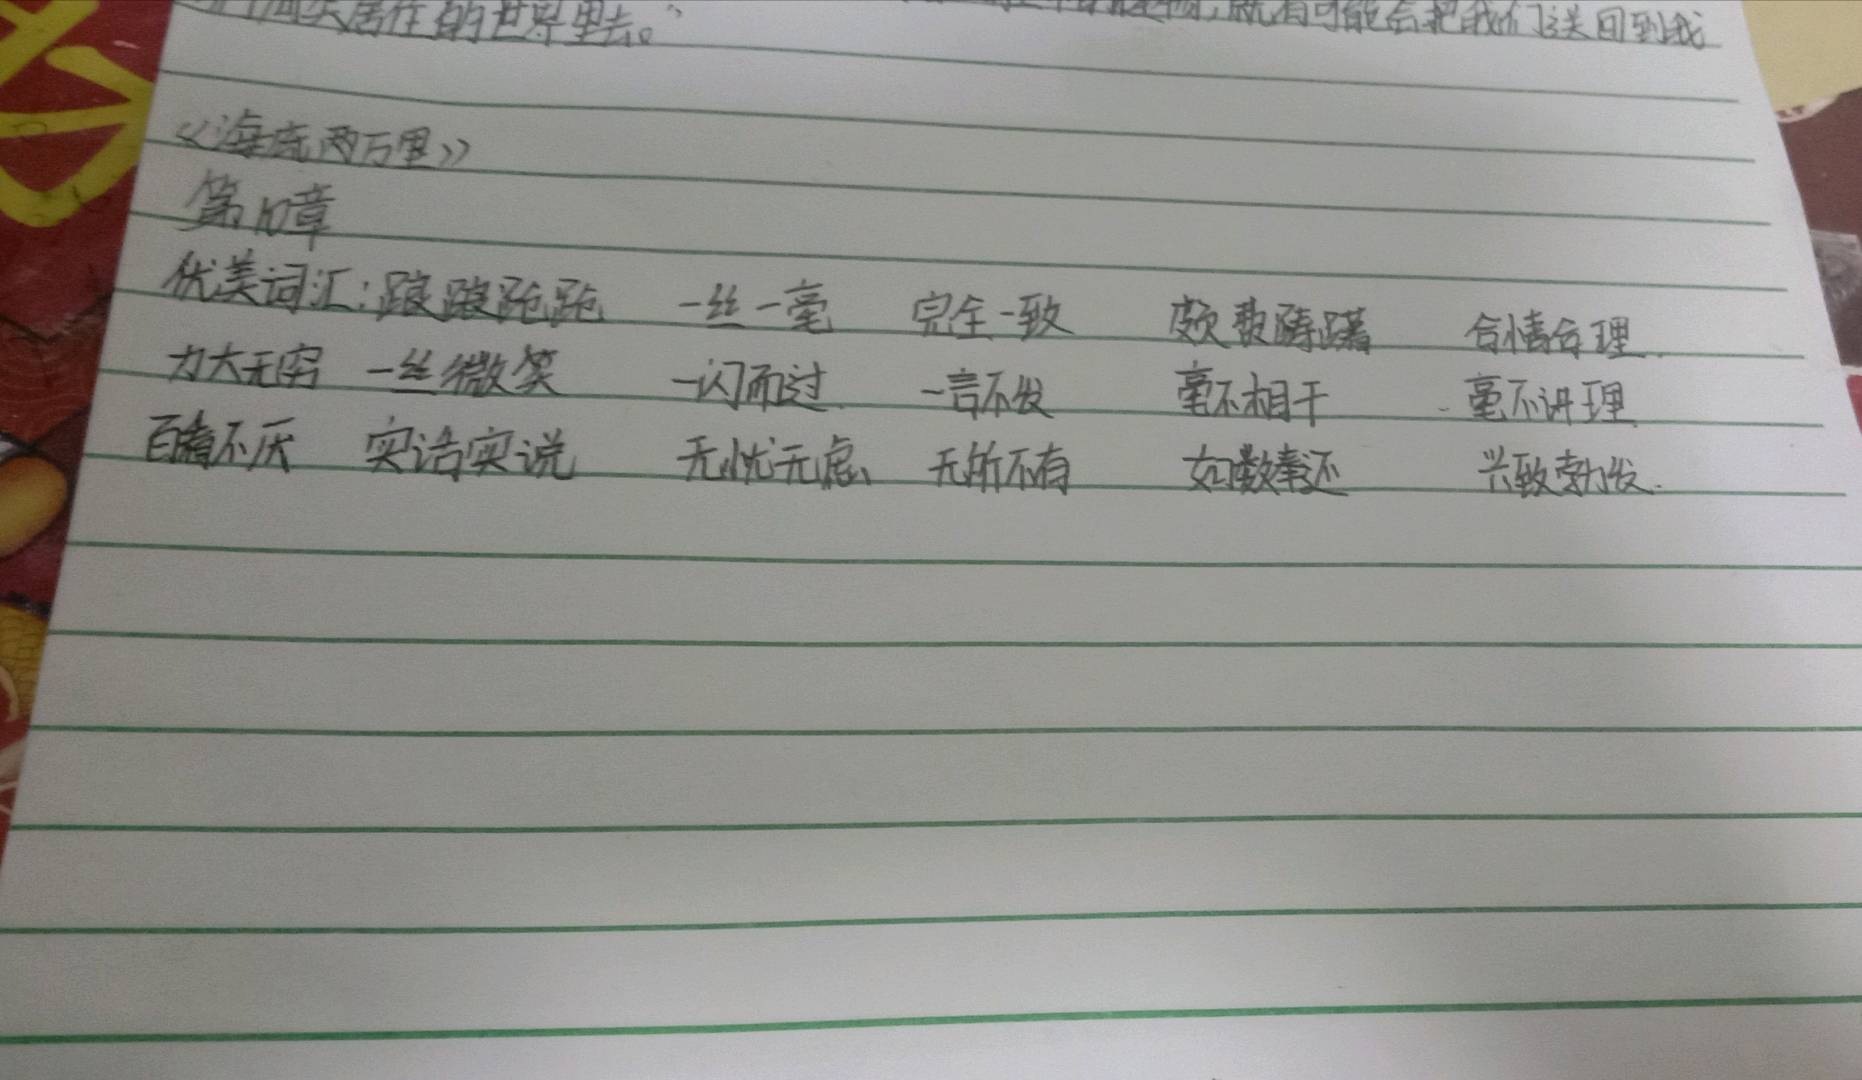 就有可能会把我们送回到我
们居住的世界里去。”
《海底两万里》
第10章
优美词汇:踉踉跄跄 一丝一毫 完全一致 颇费踌躇 合情合理
力大无穷 一丝微笑 一闪而过 一言不发 毫不相干 毫不讲理
百看不厌 实话实说 无忧无虑 无所不有 如数奉还 兴致勃发